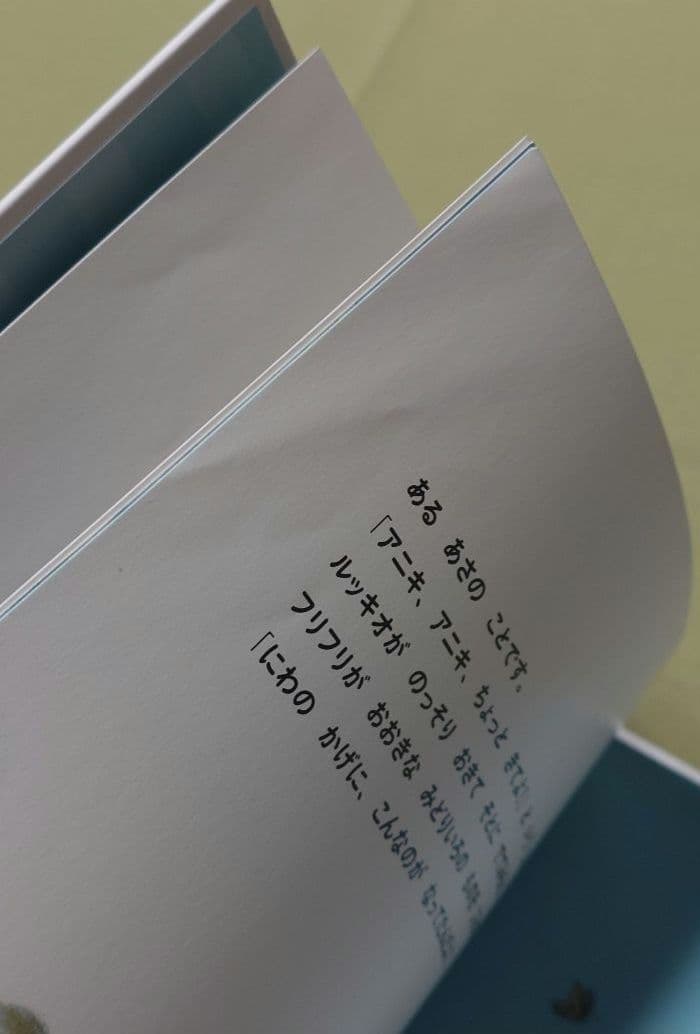 ある あさの ことです。
「アニキ、アニキ、ちょっと きてよ」と
ルッキオが のっそり おきて そとに
フリフリが おおきな みどりいろの
「にわの かげに、こんなのが なってたんだ